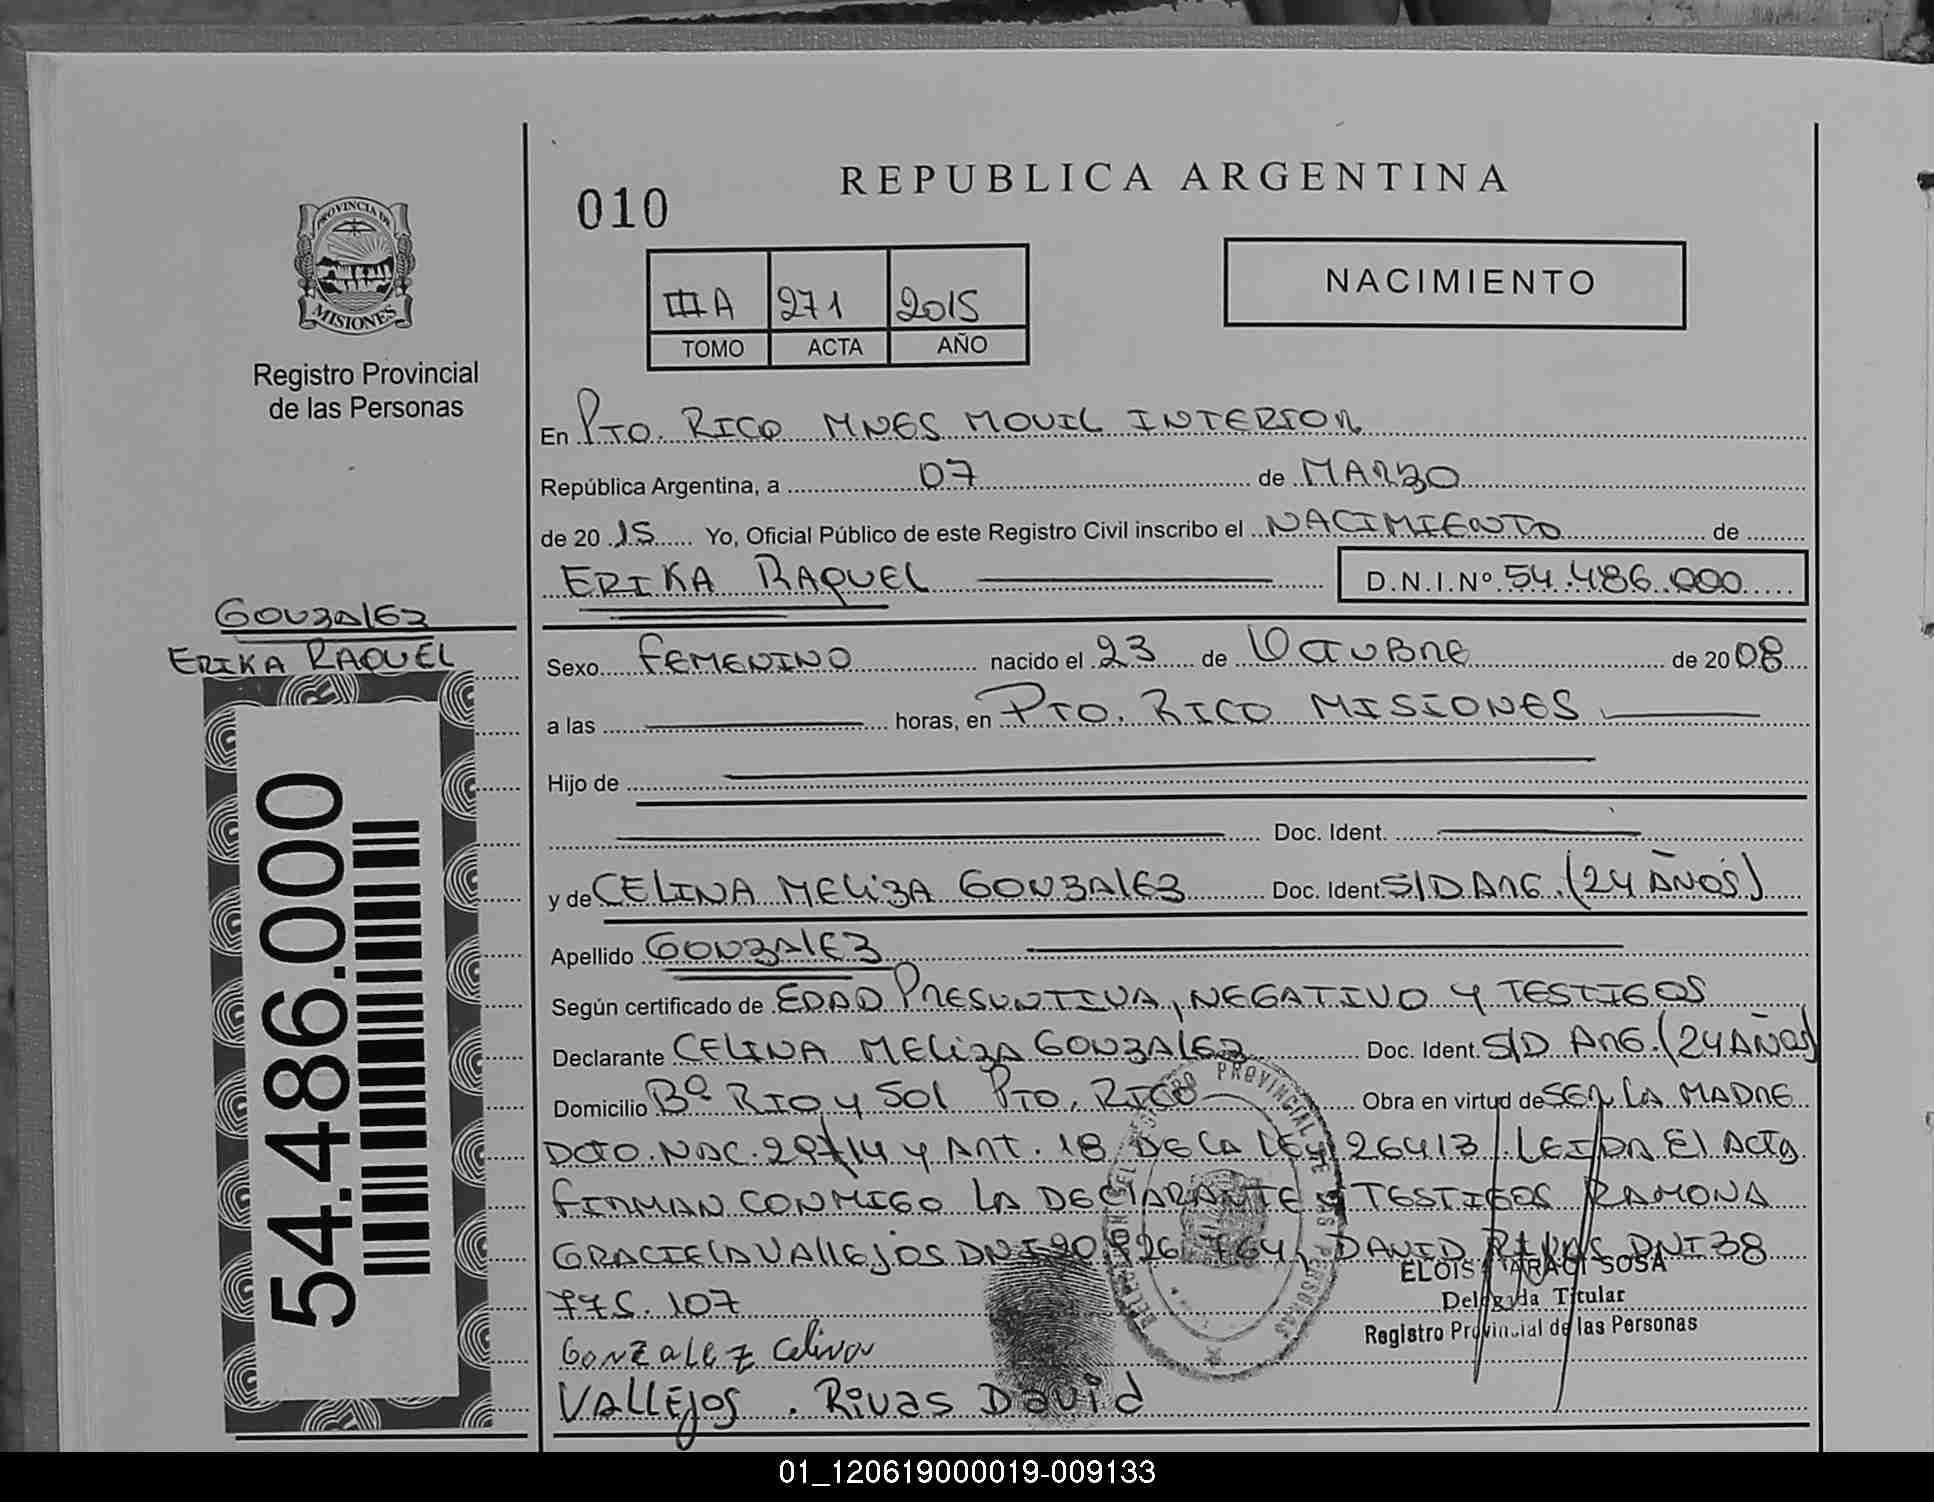 REPUBLICA ARGENTINA
010
PROVINCIA DE
MISIONES
Registro Provincial
de las Personas
III A 271 2015
TOMO ACTA AÑO
NACIMIENTO
En PTO. RICO MNES MOVIL INTERIOR
República Argentina, a 07 de MARZO
de 2015 Yo, Oficial Público de este Registro Civil inscribo el NACIMIENTO de
ERIKA RAQUEL D.N.I.Nº 54.486.000
GONZALEZ
ERIKA RAQUEL
54.486.000
Sexo FEMENINO nacido el 23 de OCTUBRE de 2008
a las horas, en PTO. RICO MISIONES
Hijo de
Doc. Ident.
y de CELINA MELIZA GONZALEZ Doc. Ident. S/D ARG. (24 AÑOS)
Apellido GONZALEZ
Según certificado de EDAD PRESUNTIVA, NEGATIVO Y TESTIGOS
Declarante CELINA MELIZA GONZALEZ Doc. Ident. S/D ARG. (24 AÑOS)
Domicilio Bº RIO y SOL PTO. RICO Obra en virtud de SER LA MADRE
DCTO. NAC. 297/14 y ART. 18 DE LA LEY 26413. LEIDA El ACTA
FIRMAN CONMIGO LA DECLARANTE y TESTIGOS RAMONA
GRACIELA VALLEJOS DNI 764, DAVID RIVAS DNI 38
775. 107
ELOISA ARACI SOSA
Delegada Titular
Registro Provincial de las Personas
Gonzalez Celina
VALLEJOS . Rivas David
01_120619000019-009133